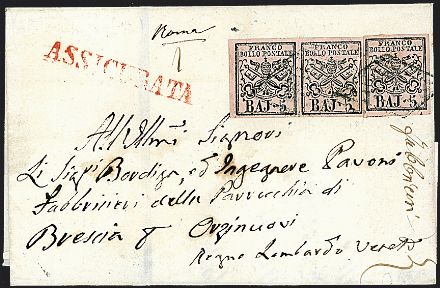 Roma
ASSICURATA
FRANCO
BOLLO POSTALE
BAJ. 5
FRANCO
BOLLO POSTALE
BAJ. 5
FRANCO
BOLLO POSTALE
BAJ. 5
All' Illmi Signori
Li Sigri Bordiga, ed Ingegnere Pavoni
Fabbricieri della Parrocchia di
Brescia Orzinuovi
Regno Lombardo Veneto